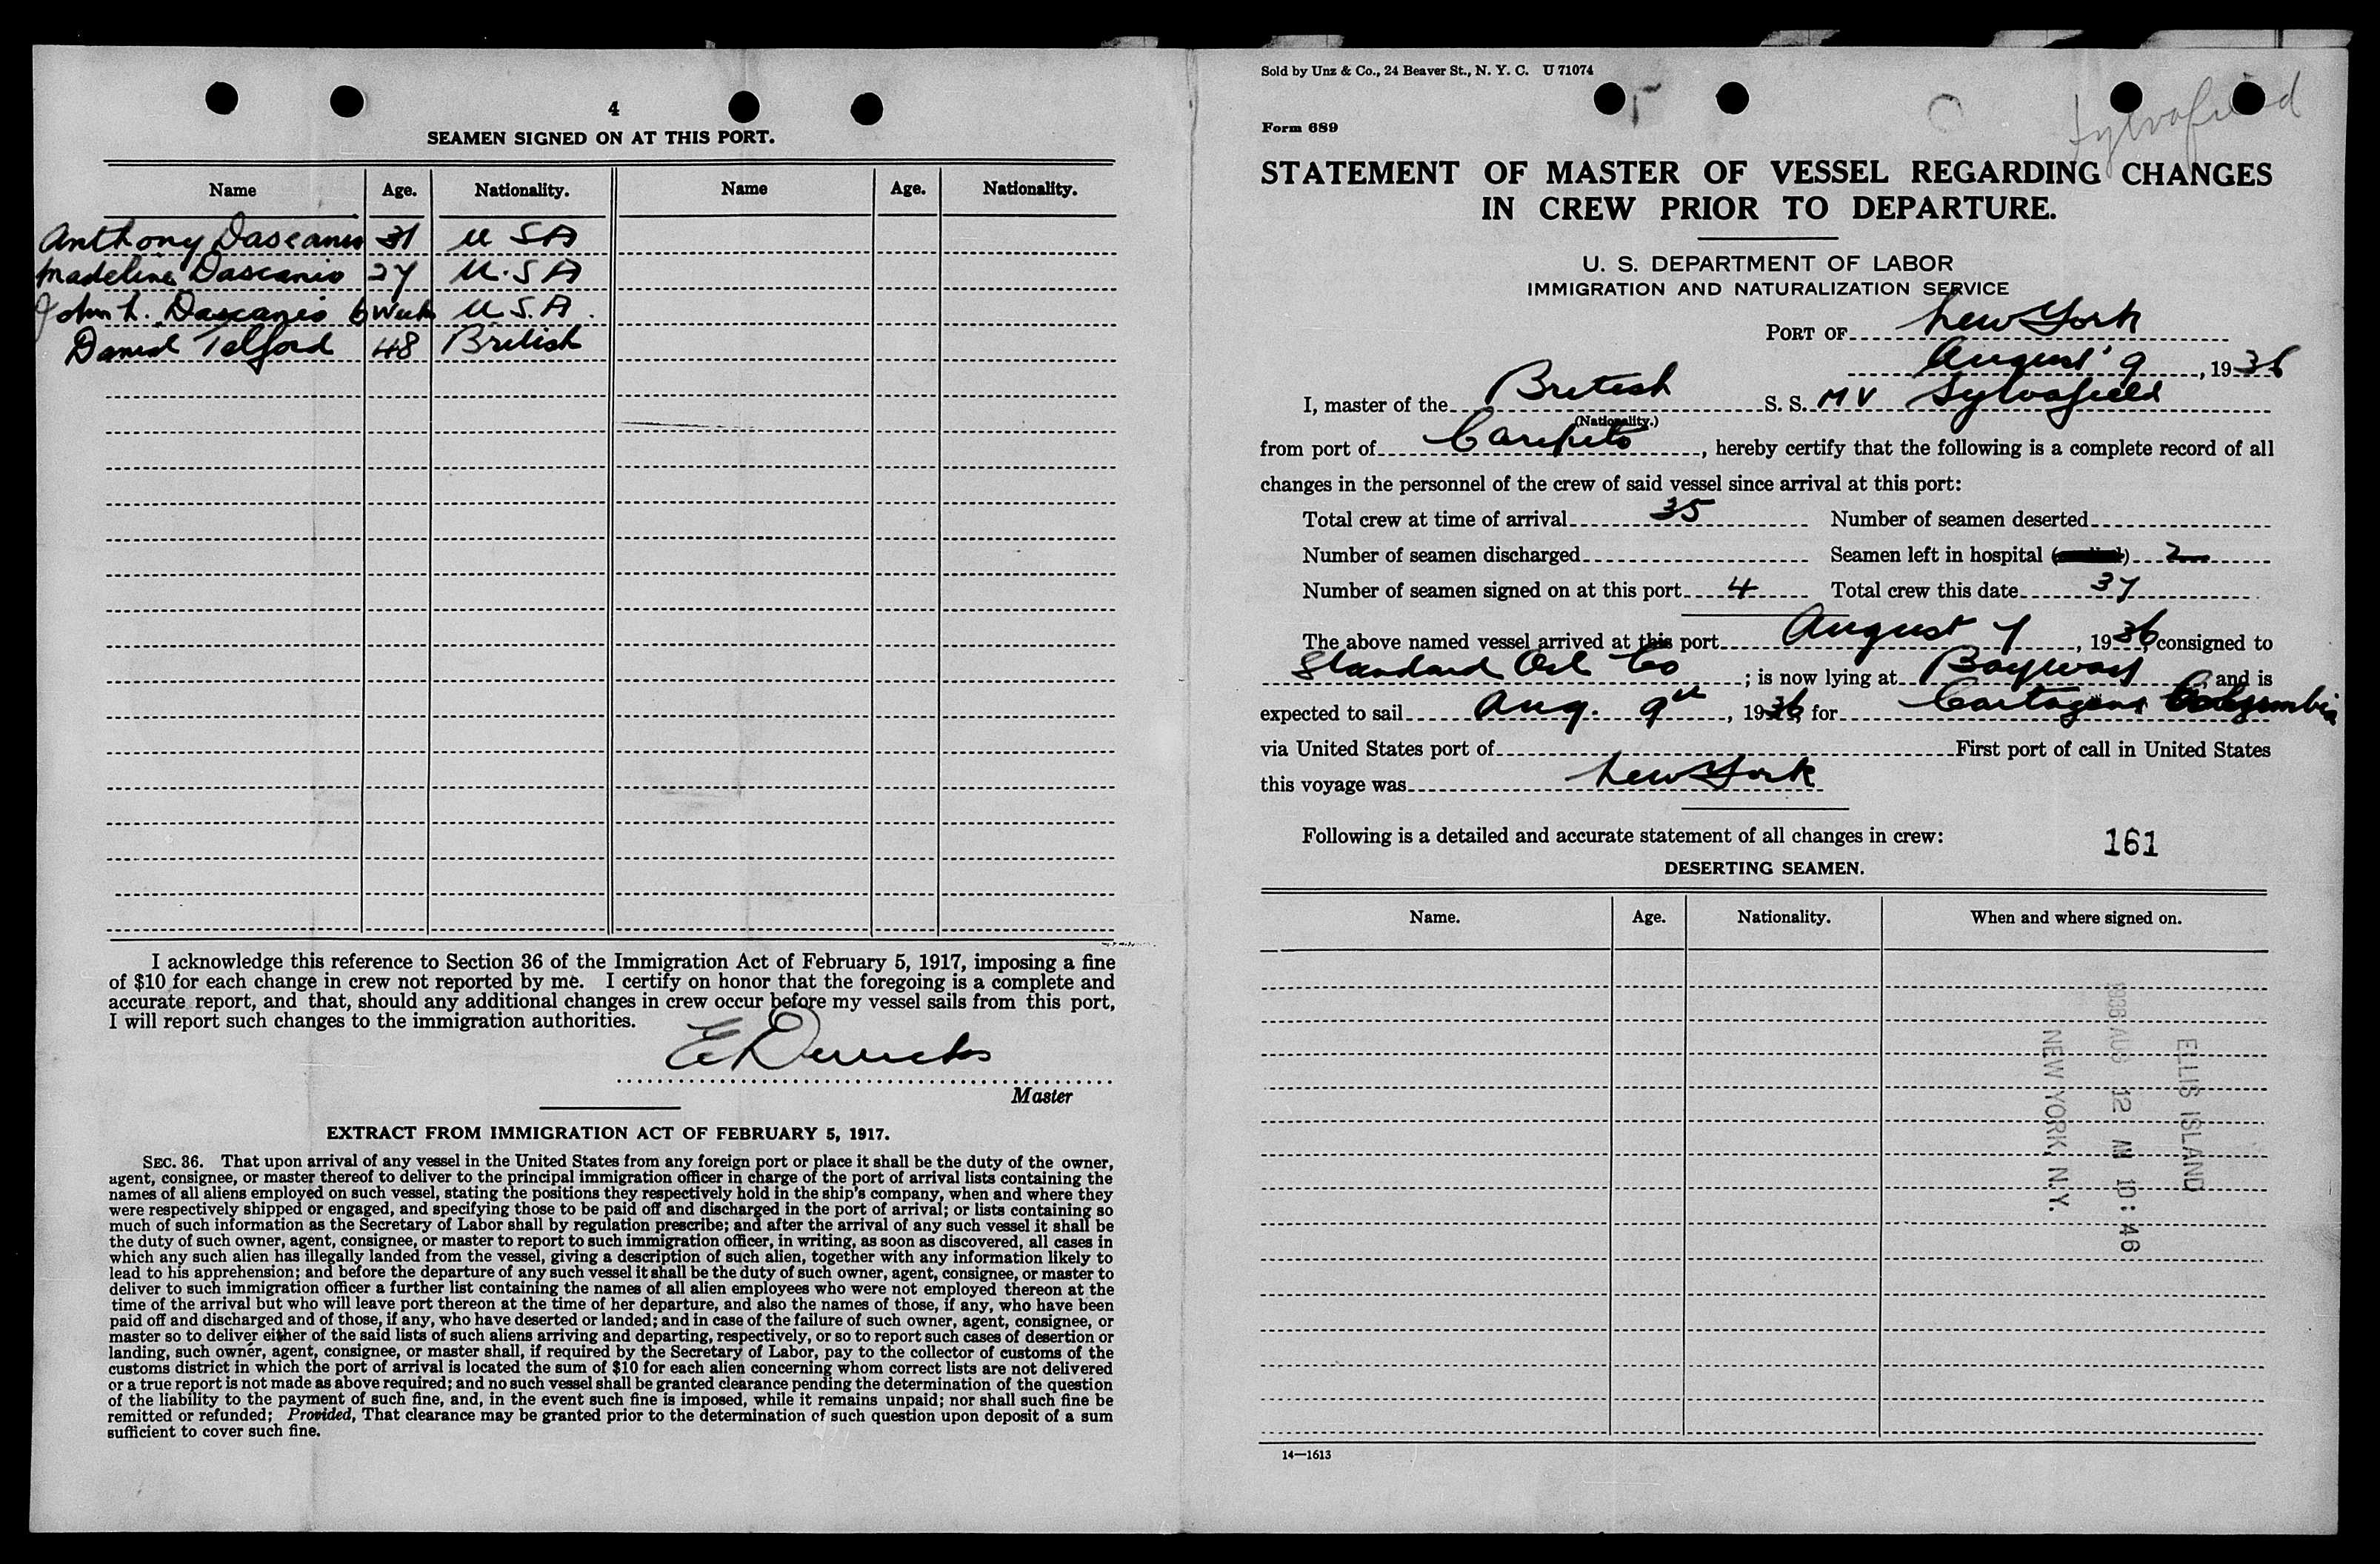 4
SEAMEN SIGNED ON AT THIS PORT.
Name Age. Nationality. Name Age. Nationality.
Anthony Dascanio 31 U S A
Madeline Dascanio 27 U.S A
John L. Dascanio 6 Weeks U.S.A.
Daniel Telford 48 British
I acknowledge this reference to Section 36 of the Immigration Act of February 5, 1917, imposing a fine
of $10 for each change in crew not reported by me. I certify on honor that the foregoing is a complete and
accurate report, and that, should any additional changes in crew occur before my vessel sails from this port,
I will report such changes to the immigration authorities.
Master
EXTRACT FROM IMMIGRATION ACT OF FEBRUARY 5, 1917.
SEC. 36. That upon arrival of any vessel in the United States from any foreign port or place it shall be the duty of the owner,
agent, consignee, or master thereof to deliver to the principal immigration officer in charge of the port of arrival lists containing the
names of all aliens employed on such vessel, stating the positions they respectively hold in the ship's company, when and where they
were respectively shipped or engaged, and specifying those to be paid off and discharged in the port of arrival; or lists containing so
much of such information as the Secretary of Labor shall by regulation prescribe; and after the arrival of any such vessel it shall be
the duty of such owner, agent, consignee, or master to report to such immigration officer, in writing, as soon as discovered, all cases in
which any such alien has illegally landed from the vessel, giving a description of such alien, together with any information likely to
lead to his apprehension; and before the departure of any such vessel it shall be the duty of such owner, agent, consignee, or master to
deliver to such immigration officer a further list containing the names of all alien employees who were not employed thereon at the
time of the arrival but who will leave port thereon at the time of her departure, and also the names of those, if any, who have been
paid off and discharged and of those, if any, who have deserted or landed; and in case of the failure of such owner, agent, consignee, or
master so to deliver either of the said lists of such aliens arriving and departing, respectively, or so to report such cases of desertion or
landing, such owner, agent, consignee, or master shall, if required by the Secretary of Labor, pay to the collector of customs of the
customs district in which the port of arrival is located the sum of $10 for each alien concerning whom correct lists are not delivered
or a true report is not made as above required; and no such vessel shall be granted clearance pending the determination of the question
of the liability to the payment of such fine, and, in the event such fine is imposed, while it remains unpaid; nor shall such fine be
remitted or refunded; Provided, That clearance may be granted prior to the determination of such question upon deposit of a sum
sufficient to cover such fine.
Sold by Unz & Co., 24 Beaver St., N. Y. C. U 71074
Sylvafield
Form 689
STATEMENT OF MASTER OF VESSEL REGARDING CHANGES
IN CREW PRIOR TO DEPARTURE.
U. S. DEPARTMENT OF LABOR
IMMIGRATION AND NATURALIZATION SERVICE
PORT OF New York
August 9, 1936
I, master of the British S. S. M V Sylvafield
(Nationality.)
from port of Caripito, hereby certify that the following is a complete record of all
changes in the personnel of the crew of said vessel since arrival at this port:
Total crew at time of arrival 35 Number of seamen deserted
Number of seamen discharged Seamen left in hospital 2
Number of seamen signed on at this port 4 Total crew this date 37
The above named vessel arrived at this port August 7, 1936, consigned to
Standard Oil Co; is now lying at Bayway, and is
expected to sail Aug. 9th, 1936, for Cartagena Columbia
via United States port of First port of call in United States
this voyage was New York
Following is a detailed and accurate statement of all changes in crew: 161
DESERTING SEAMEN.
Name. Age. Nationality. When and where signed on.
ELLIS ISLAND
1936 AUG 12 AM 10:46
NEW YORK, N.Y.
14—1613